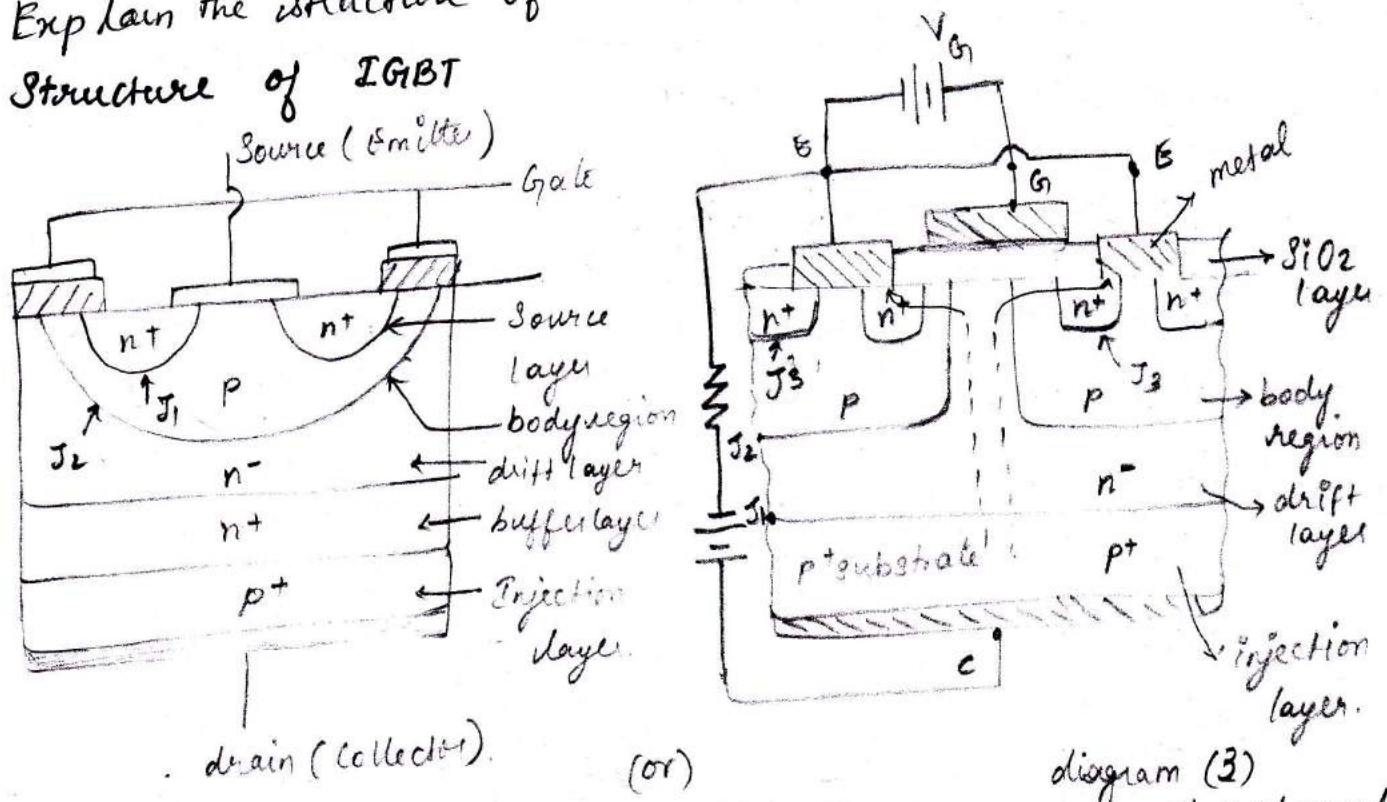 Explain the structure of
Structure of IGBT
Source (Emitter)
Gate
n+
n+
Source
layer
J1
P
J2
body region
n-
drift layer
n+
buffer layer
p+
Injection
layer.
drain (Collector).
(or)
VG
E
G
E
metal
SiO2
layer
n+
n+
n+
n+
J3
J3
P
P
body
region
J2
n-
drift
layer
J1
p+ substrate
p+
injection
layer.
C
diagram (3)